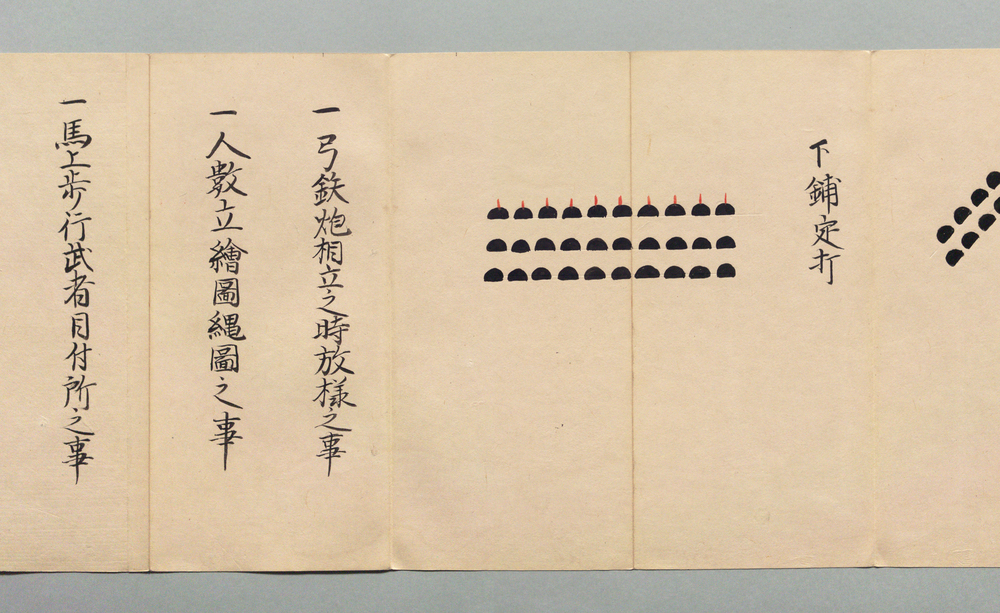 下鋪定打
一弓鉄炮相立之時放様之事
一人數立繪圖縄圖之事
一馬上歩行武者目付所之事